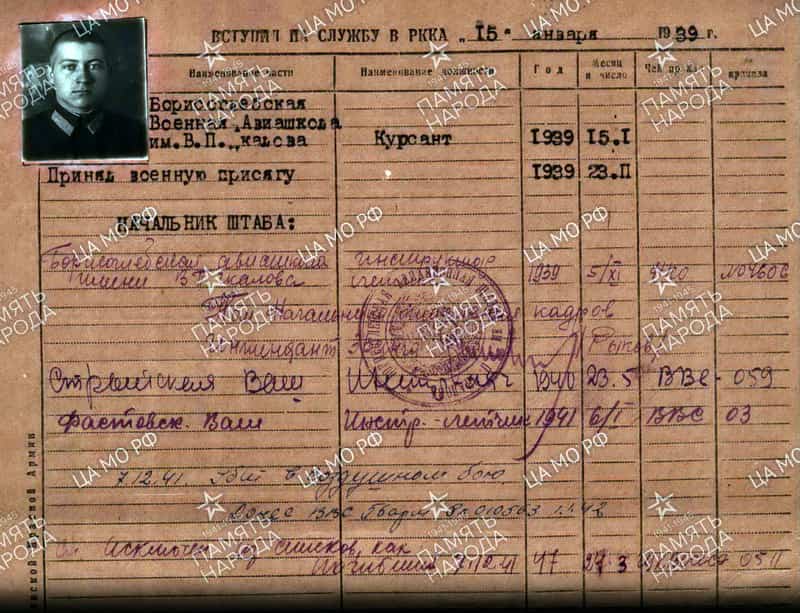 ВСТУПИЛ НА СЛУЖБУ В РККА „15“ января 1939 г.
Наименование части Наименование должности Год Месяц и число Чей приказ приказа
Борисоглебская
Военная Авиашкола
им.В.П.Чкалова Курсант 1939 15.I
Принял военную присягу 1939 23.П
НАЧАЛЬНИК ШТАБА:
Борисоглебская авиашкола инструктор
имени ВП Чкалова летчик 1939 5/XI НКО №04606
Пом Начальника кадров
Интендант 3 ранга Рыков
Стрыйская Ваш 1940 23.5 ВВС 059
Фастовск. Ваш Инстр.-летчик 1941 6/I ВВС 03
7.12.41. Убит в воздушном бою
Донес ВВС №010503 1.1.42
Исключен из списков, как
погибший 7.12.41 47 27.3 0511
ЦА МО РФ
ПАМЯТЬ НАРОДА